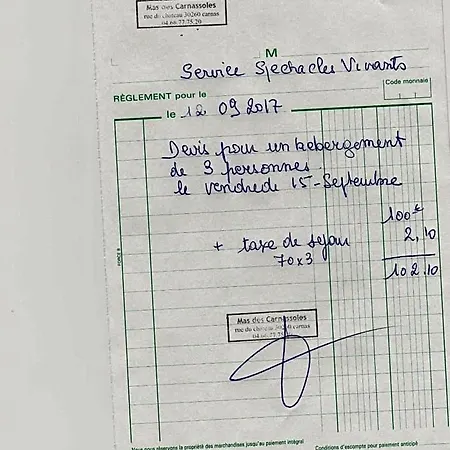 Mas des Carnassoles
rue du chateau 30260 carnas
04.66.77.75.20
M
Service Spectacles Vivants
Code monnaie
RÈGLEMENT pour le
le 12 09 2017
Devis pour un hebergement
de 3 personnes
le vendredi 15 - Septembre
100€
+ taxe de sejour 2,10
70x3
102.10
Mas des Carnassoles
rue du chateau 30260 carnas
04.66.77.75.20
Nous nous réservons la propriété des marchandises jusqu'au paiement intégral
Conditions d'escompte pour paiement anticipé